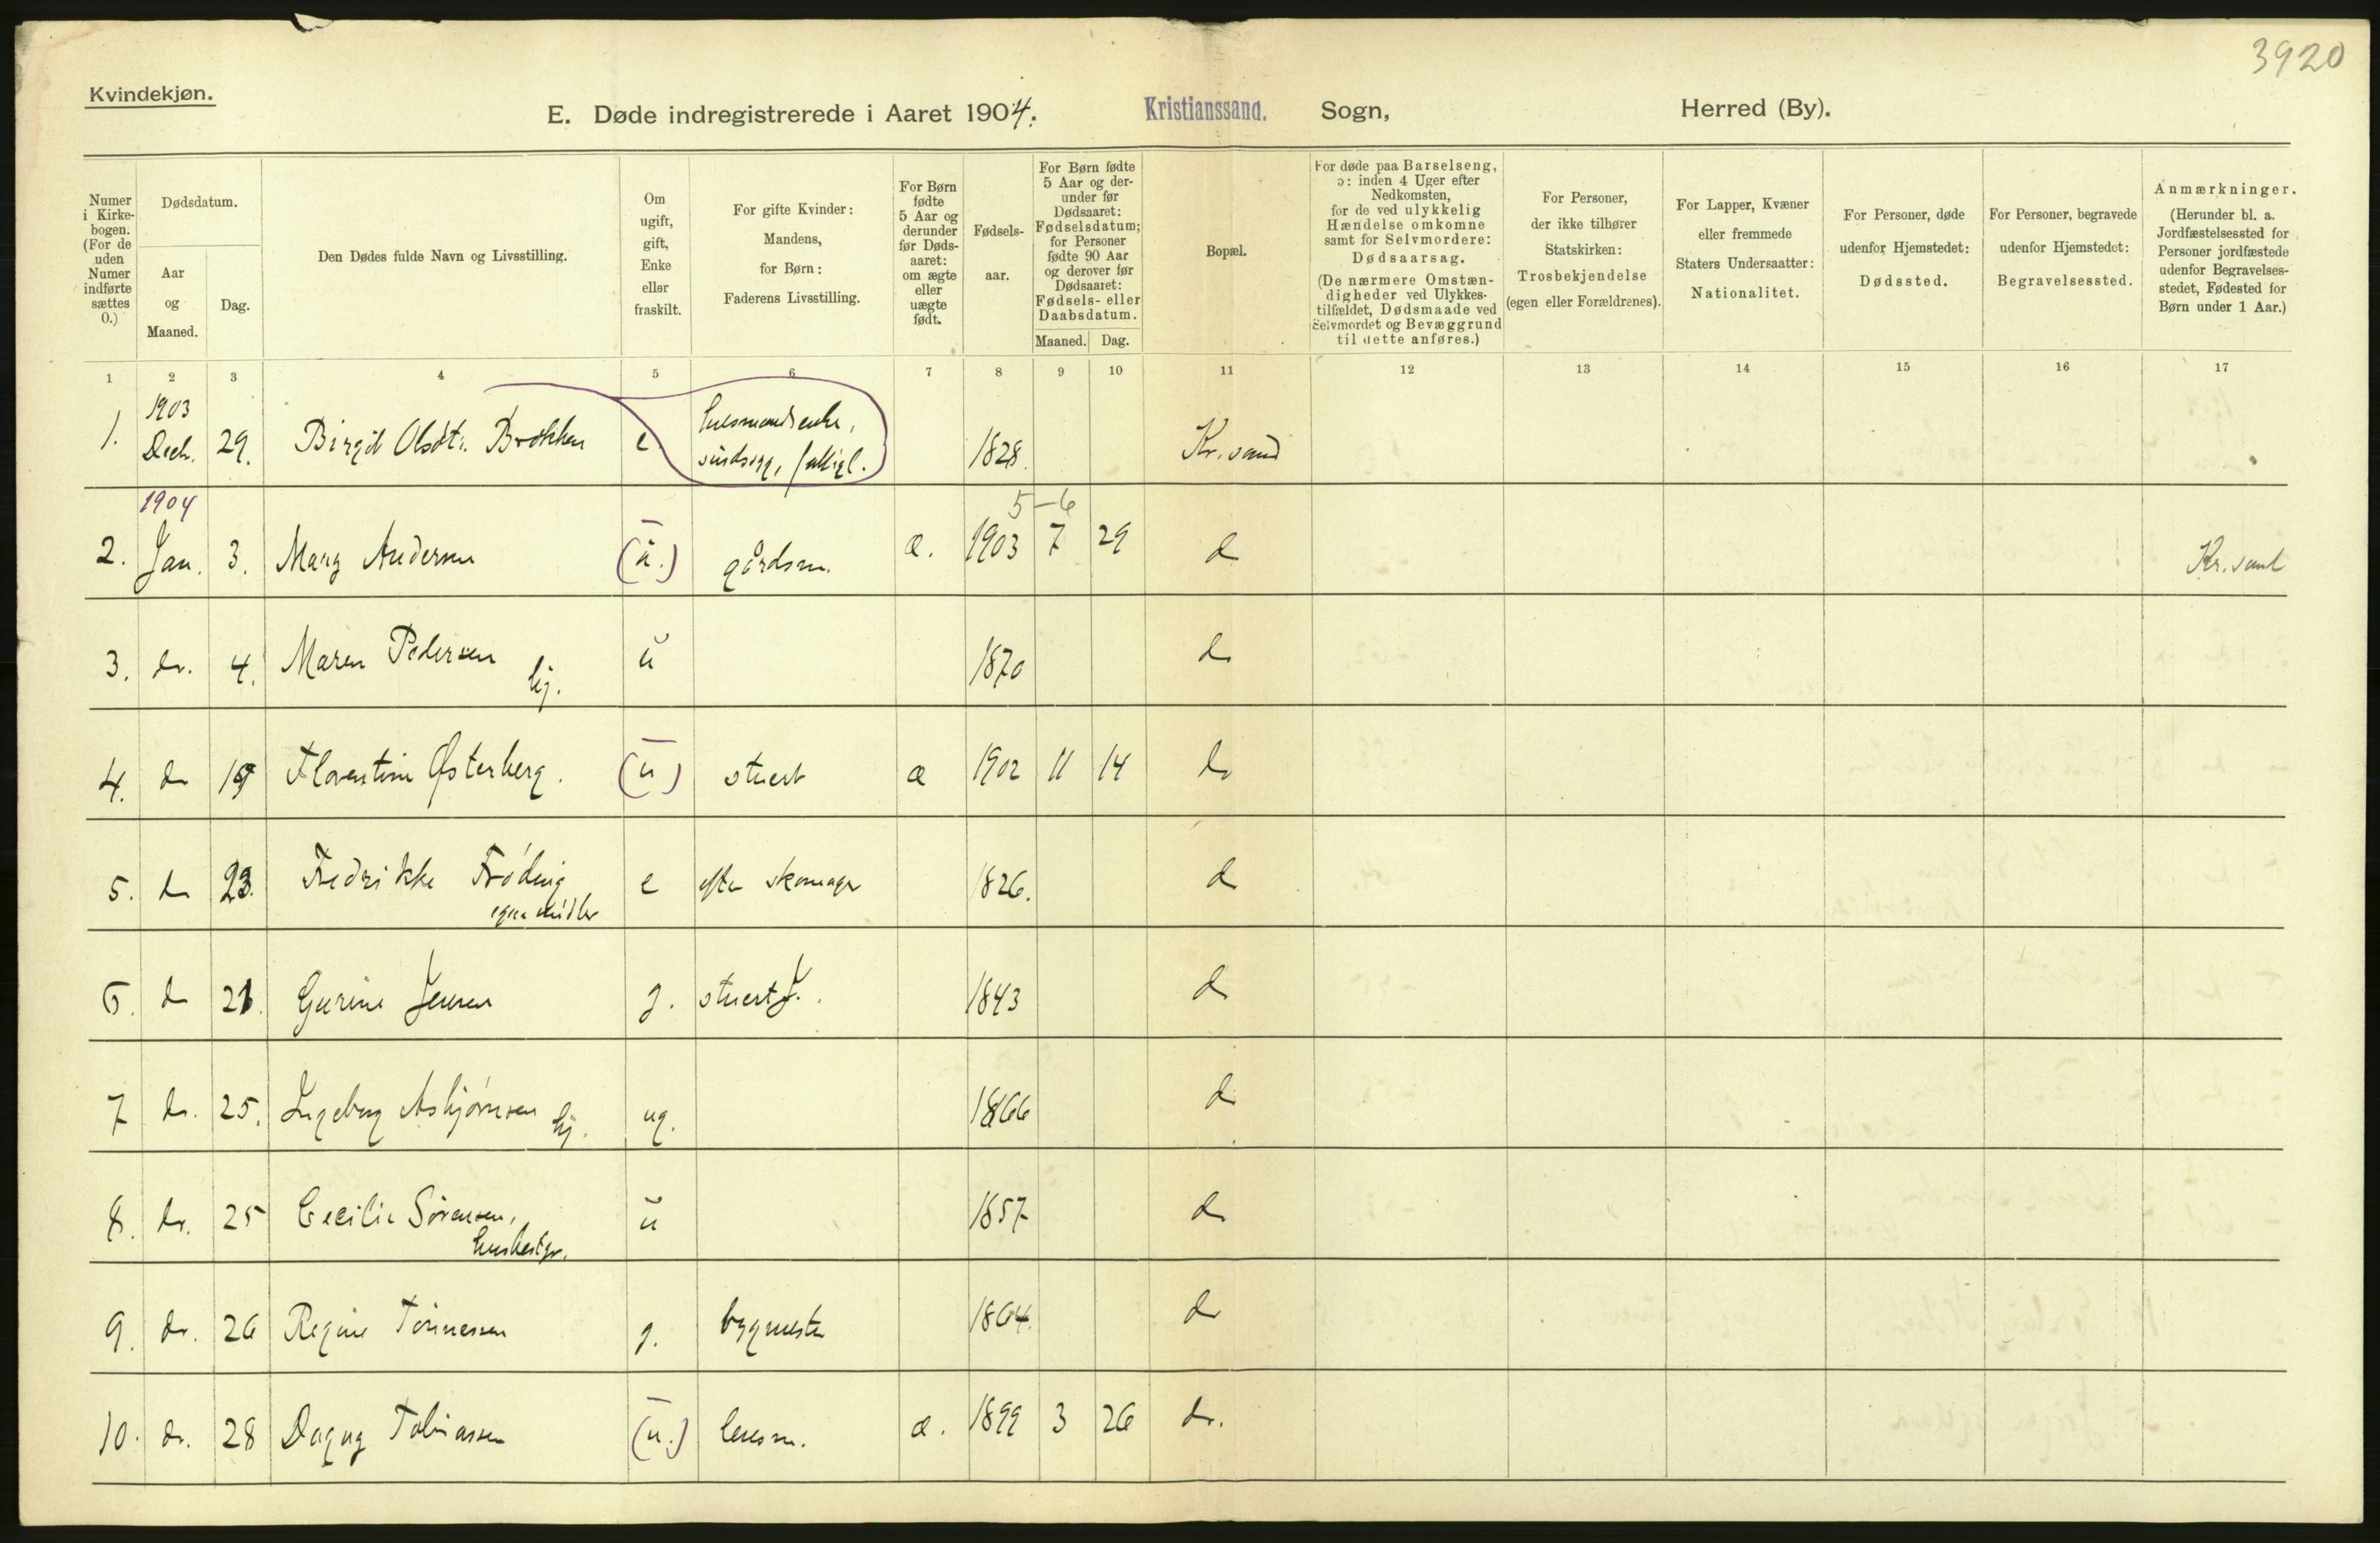 3920
Kvindekjøn.
E. Døde indregistrerede i Aaret 1904. Kristianssand. Sogn, Herred (By).
Numer
i Kirke-
bogen.
(For de
uden
Numer
indførte
sættes
0.)
Dødsdatum.
Aar
og
Maaned.
Dag.
Den Dødes fulde Navn og Livsstilling.
Om
ugift,
gift,
Enke
eller
fraskilt.
For gifte Kvinder:
Mandens,
for Børn:
Faderens Livsstilling.
For Børn
fødte
5 Aar og
derunder
før Døds-
aaret:
om ægte
eller
uægte
født.
Fødsels-
aar.
For Børn fødte
5 Aar og der-
under før
Dødsaaret:
Fødselsdatum;
for Personer
fødte 90 Aar
og derover før
Dødsaaret:
Fødsels- eller
Daabsdatum.
Maaned. Dag.
Bopæl.
For døde paa Barselseng,
ɔ: inden 4 Uger efter
Nedkomsten,
for de ved ulykkelig
Hændelse omkomne
samt for Selvmordere:
Dødsaarsag.
(De nærmere Omstæn-
digheder ved Ulykkes-
tilfældet, Dødsmaade ved
Selvmordet og Bevæggrund
til dette anføres.)
For Personer,
der ikke tilhører
Statskirken:
Trosbekjendelse
(egen eller Forældrenes).
For Lapper, Kvæner
eller fremmede
Staters Undersaatter:
Nationalitet.
For Personer, døde
udenfor Hjemstedet:
Dødssted.
For Personer, begravede
udenfor Hjemstedet:
Begravelsessted.
Anmærkninger.
(Herunder bl. a.
Jordfæstelsessted for
Personer jordfæstede
udenfor Begravelses-
stedet, Fødested for
Børn under 1 Aar.)
1 2 3 4 5 6 7 8 9 10 11 12 13 14 15 16 17
1903
husmandsenke,
1. Decb. 29. Birgit Olsdtr. Brokken e. sindssyg, fattigl. 1828. Kr.sand
1904
5-6
2. Jan. 3. Mary Andersen (ū.) gårdsm. æ. 1903 7 29 do Kr.sand
3. do. 4. Maren Pedersen ŭ 1870 do
tj.
4. do 19 Florentine Østerberg. (ū) stuert æ 1902 11 14 do
5. do 23. Fredrikke Frøding e efter skomager 1826. do
egne midler
6. do 21. Gurine Jensen g. stuert J. 1843 do
7 do. 25. Ingeborg Asbjørnsen tj. ug. 1866 do
8. do. 25 Cecilie Sørensen, ŭ 1857 do
husbestyr.
9. do. 26 Regine Tønnesen g. bygmester 1864. do
10. do. 28 Dagny Tobiassen (ū.) husm. æ. 1899 3 26 do.